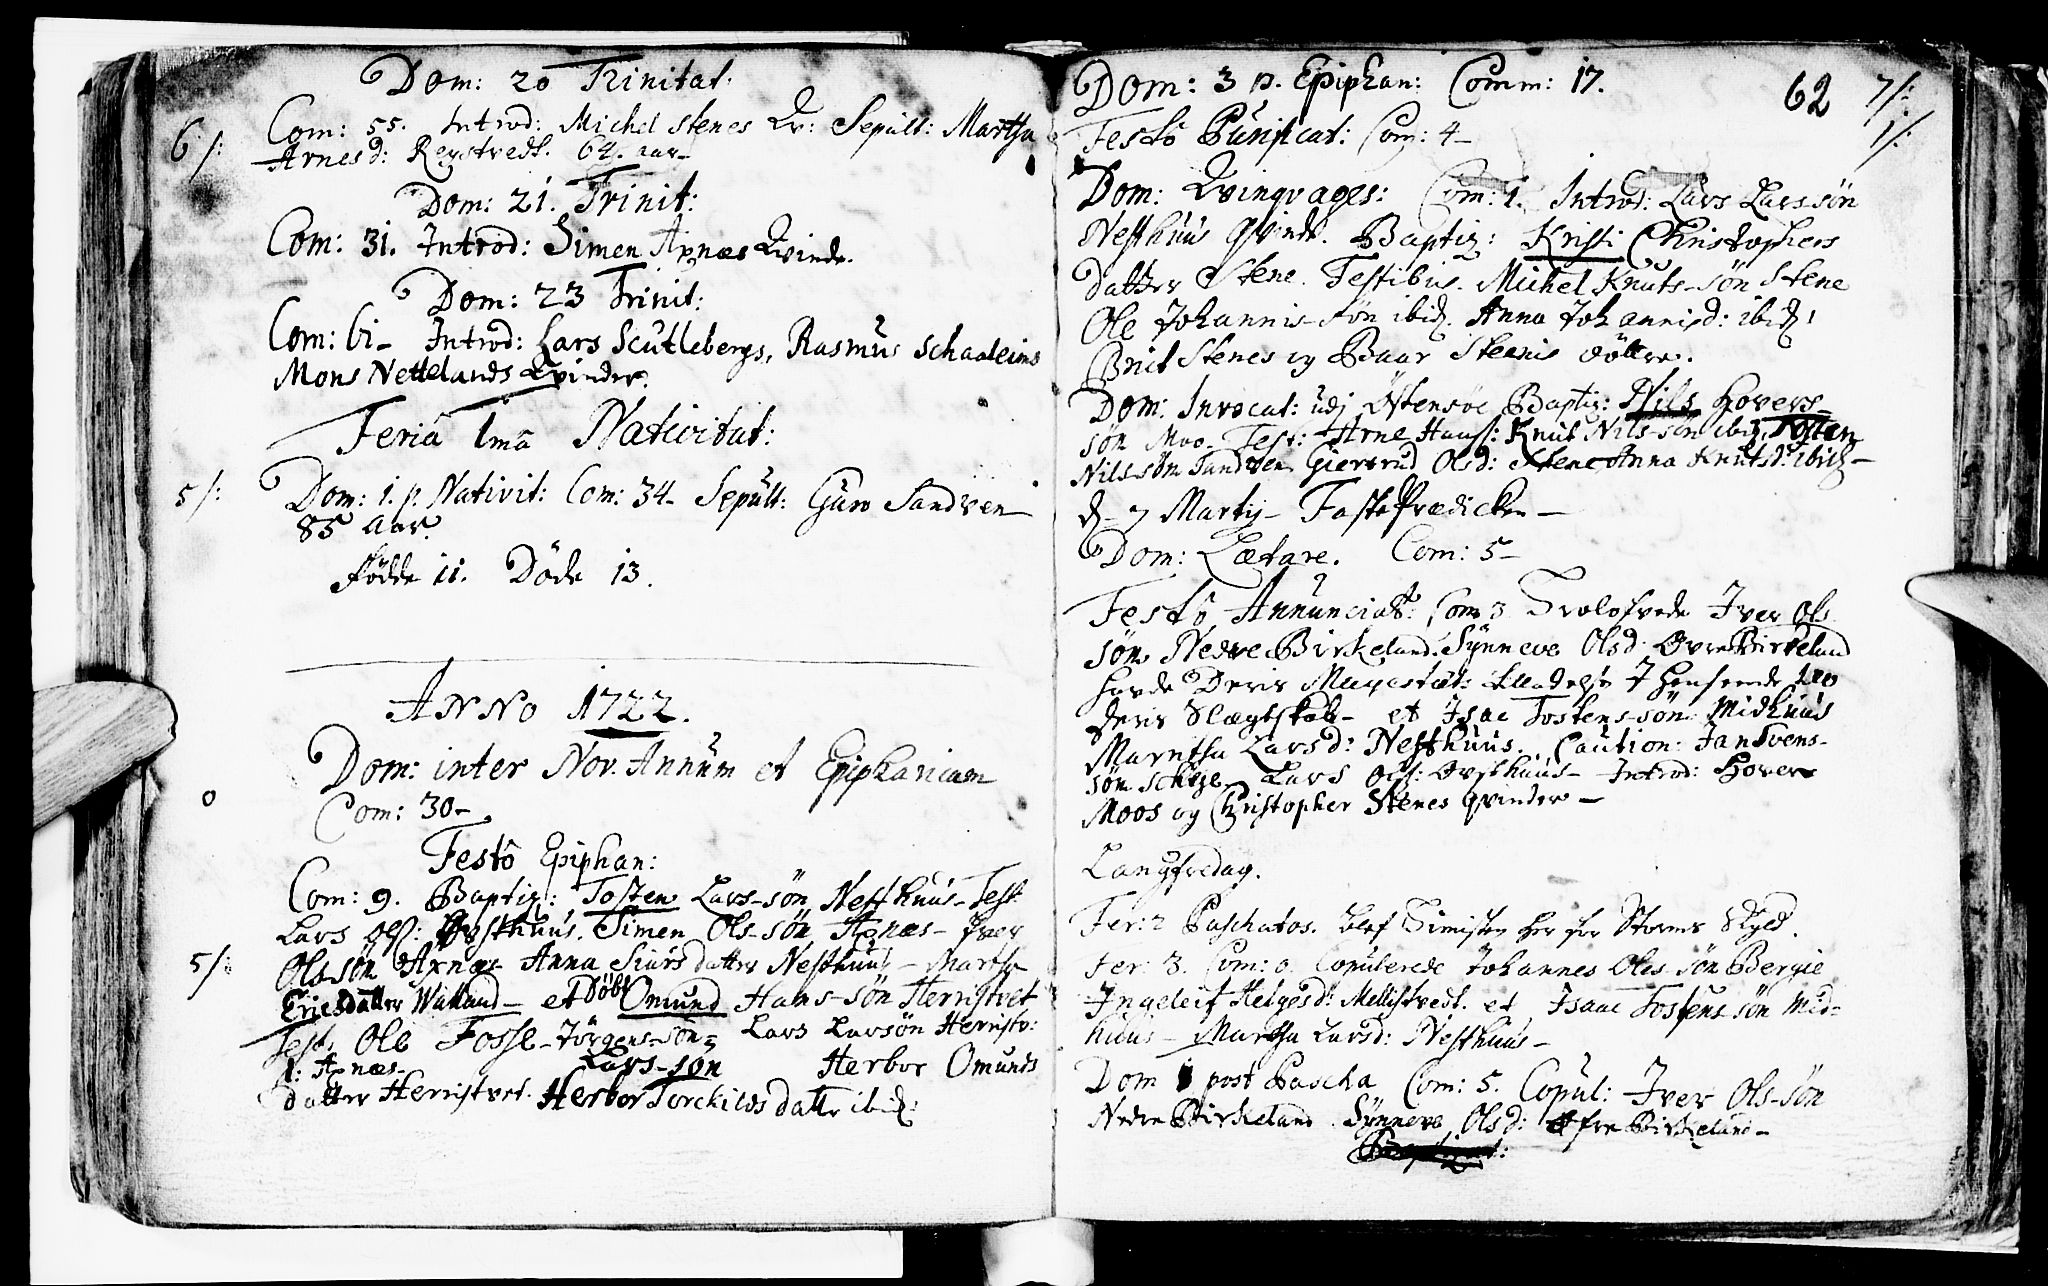 Dom: 20 Trinitat:
6/: Com: 55. Introd: Michel Stenes Qv: Sepult: Martha
Arnesd: Reystvedt. 64. aar
Dom: 21. Trinit:
Com: 31. Introd: Simen Axnæs Qvinde.
Dom: 23 Trinit:
Com: 61 - Introd: Lars Scutlebergs, Rasmus Schaaleims
Mons Nettelands Qvinder.
Feria 1ma Nativitat:
5/: Dom: 1. p. Nativit: Com: 34 - Sepult: Guro Sandven
85 aar.
Fødde 11. Døde 13.
ANNO 1722.
Dom: inter Nov. Annum et Epiphaniam
0 Com: 30 -
Festo Epiphan:
Com: 9. Baptiz: Tosten Lars-søn Nesthuus - Test
Lars Ols: Øvsthuus. Simen Ols-søn Axnæs - Iver
5/: Olssøn Axnæs Anna Siursdatter Nesthuus - Martha
Ericsdatter Wiklund - et døbt Omund Hans-søn Herristvet
Test, Ole Fosse - Jørgens-søn Lars Larsøn Herristv:
Axnæs - Lars-søn Herbor Omunds
datter Herristvet. Herbor Torckilds datter ibid:
Dom: 3 p. Epiphan: Comm: 17. 62 7/:
Festo Purificat: Com: 4 - 1/:
Dom: Qvinqvages: Com: 1. Introd: Lars Larssøn
Nesthuus Qvinde. Baptiz: Kristi Christophers
datter Stene. Testibus. Michel Knuts-søn Stene
Ole Johannis-søn ibid. Anna Johannisd: ibid:
Brit Stenes og Baar Steenis døttre.
Dom: Invocat: udj Østensøe Baptiz: Nils Hovers-
søn Moo - Test: Arne Hanss: Knut Nils-søn ibid, Tosten
Nilssøn Sandven Giertrud Olsd: Stene Anna Knutsd: ibid -
d - 7 Martij - Faste Prædicken -
Dom: Lætare. Com: 5 -
Festo Annunciat: Com 3 Trolofvede Iver Ols
søn Nedre Birkeland. Synneve Olsd: Øvre Birkeland
havde Deris Mayestæt: tilladelse I henseende till
deris Slægtskab - et Isac Tostens-søn Midhuus
Marttha Larsd: Nesthuus. Caution: Jan Svens-
søn Lars Ols: Øvsthuus - Introd: Hover
Moos og Christopher Stenes qvinder -
Langfredag.
Fer: 2 Paschatos. blef Timisten her for Storms Skyld.
Fer: 3. Com: 0. Copulerede Johannes Oles-søn Bergie
Ingeleif Helgesd: Mellistvedt. et Isaac Tostens søn Mid-
huus - Martha Larsd: Nesthuus -
Dom 1 post Pascha Com: 5. Copul: Iver Ols-søn
Nedre Birkeland. Synneve Olsd: Øfre Birkeland -